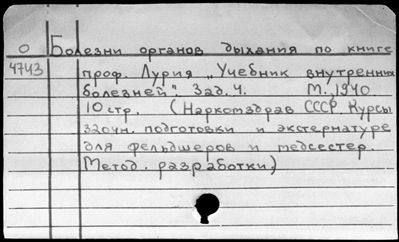 О Болезни органов дыхания по книге
4743 проф. Лурия „Учебник внутренних
болезней". Зад. 4. М., 1940
10 стр. (Наркомздрав СССР. Курсы
заочн. подготовки и экстернатуре
для фельдшеров и медсестер.
Метод. разработки)